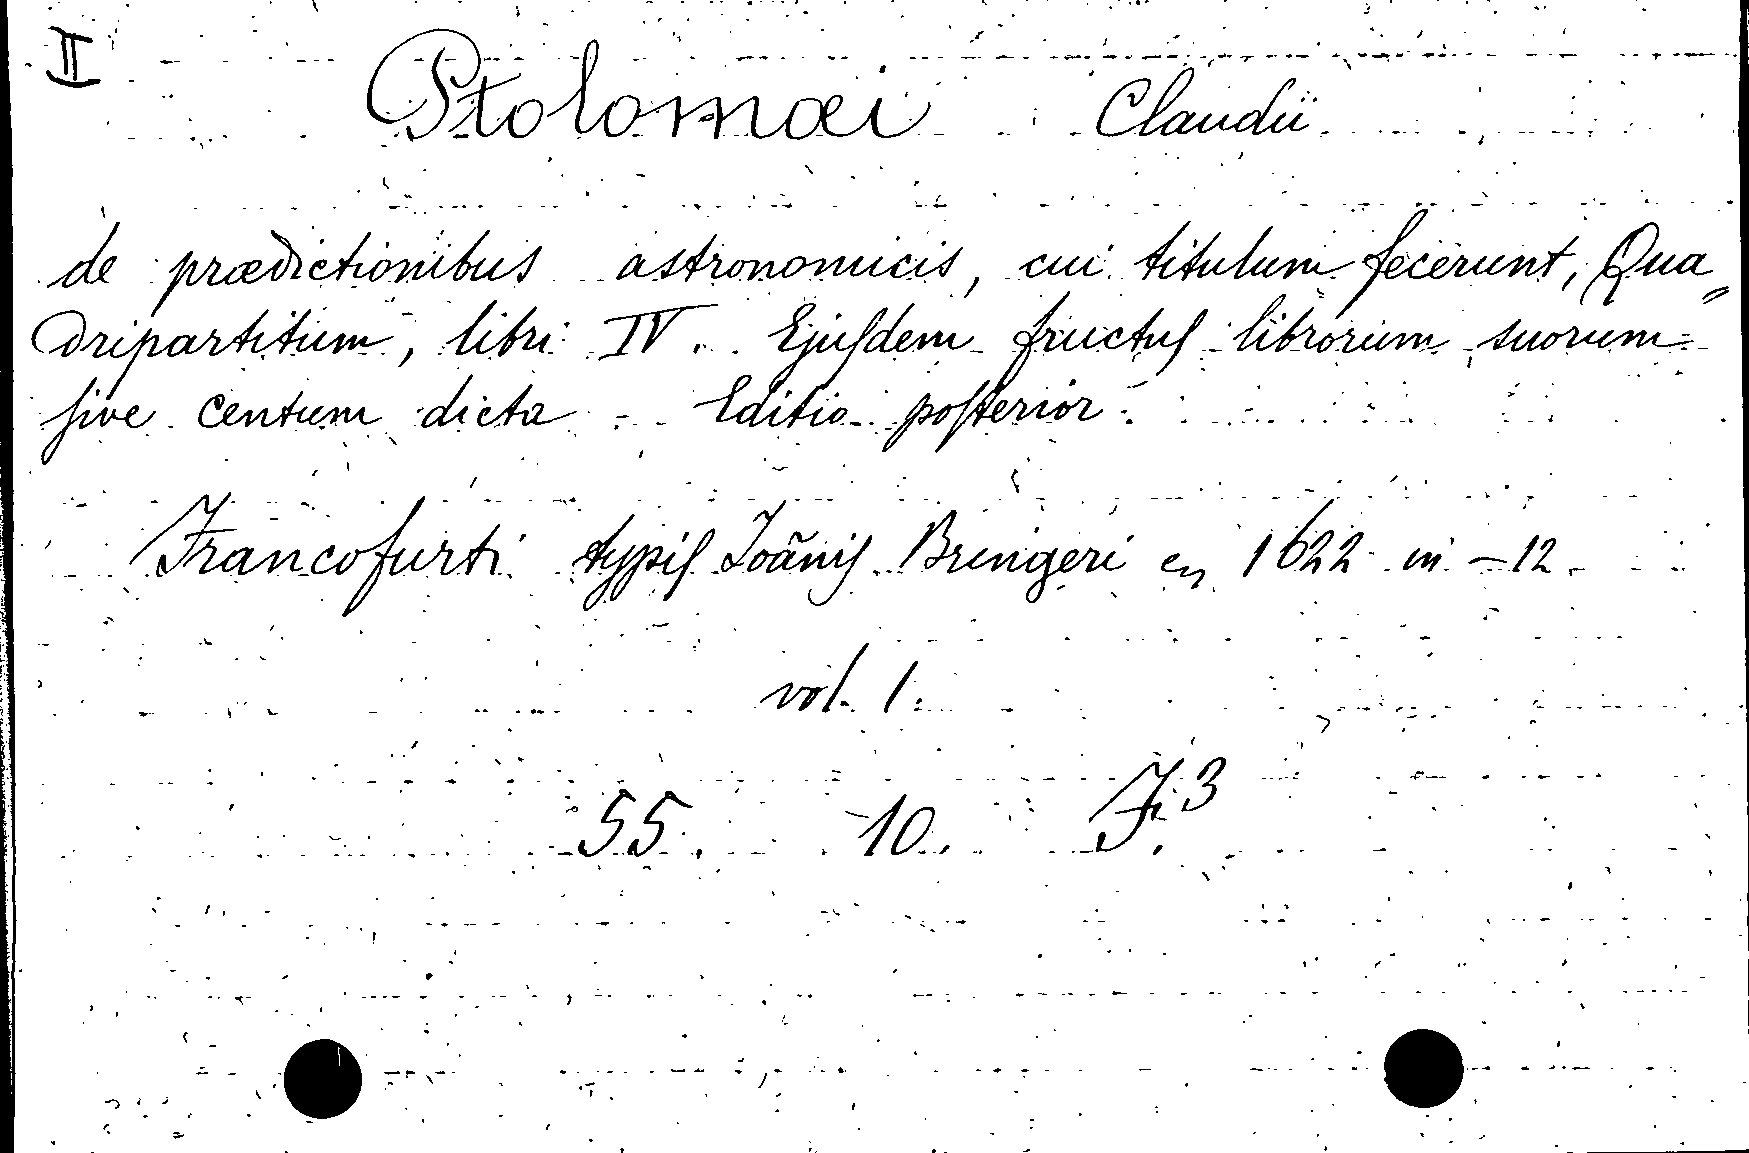 II
Ptolomæi Claudii
de prædictionibus astronomicis, cui titulum fecerunt, Qua„
dripartitum, libri IV. Ejuſdem fructuſ librorum suorum
ſive centum dicta. Editio poſterior.
Francofurti typiſ Joāniſ Bringeri en 1622 in-12.
vol. 1.
55. 10. F.3